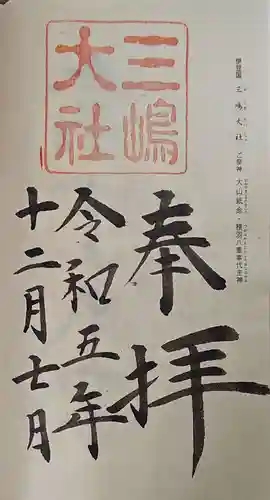 伊豆国 三嶋大社 ご祭神 大山祇命・積羽八重事代主神
三嶋
大社
奉拝
令和五年
十二月七日